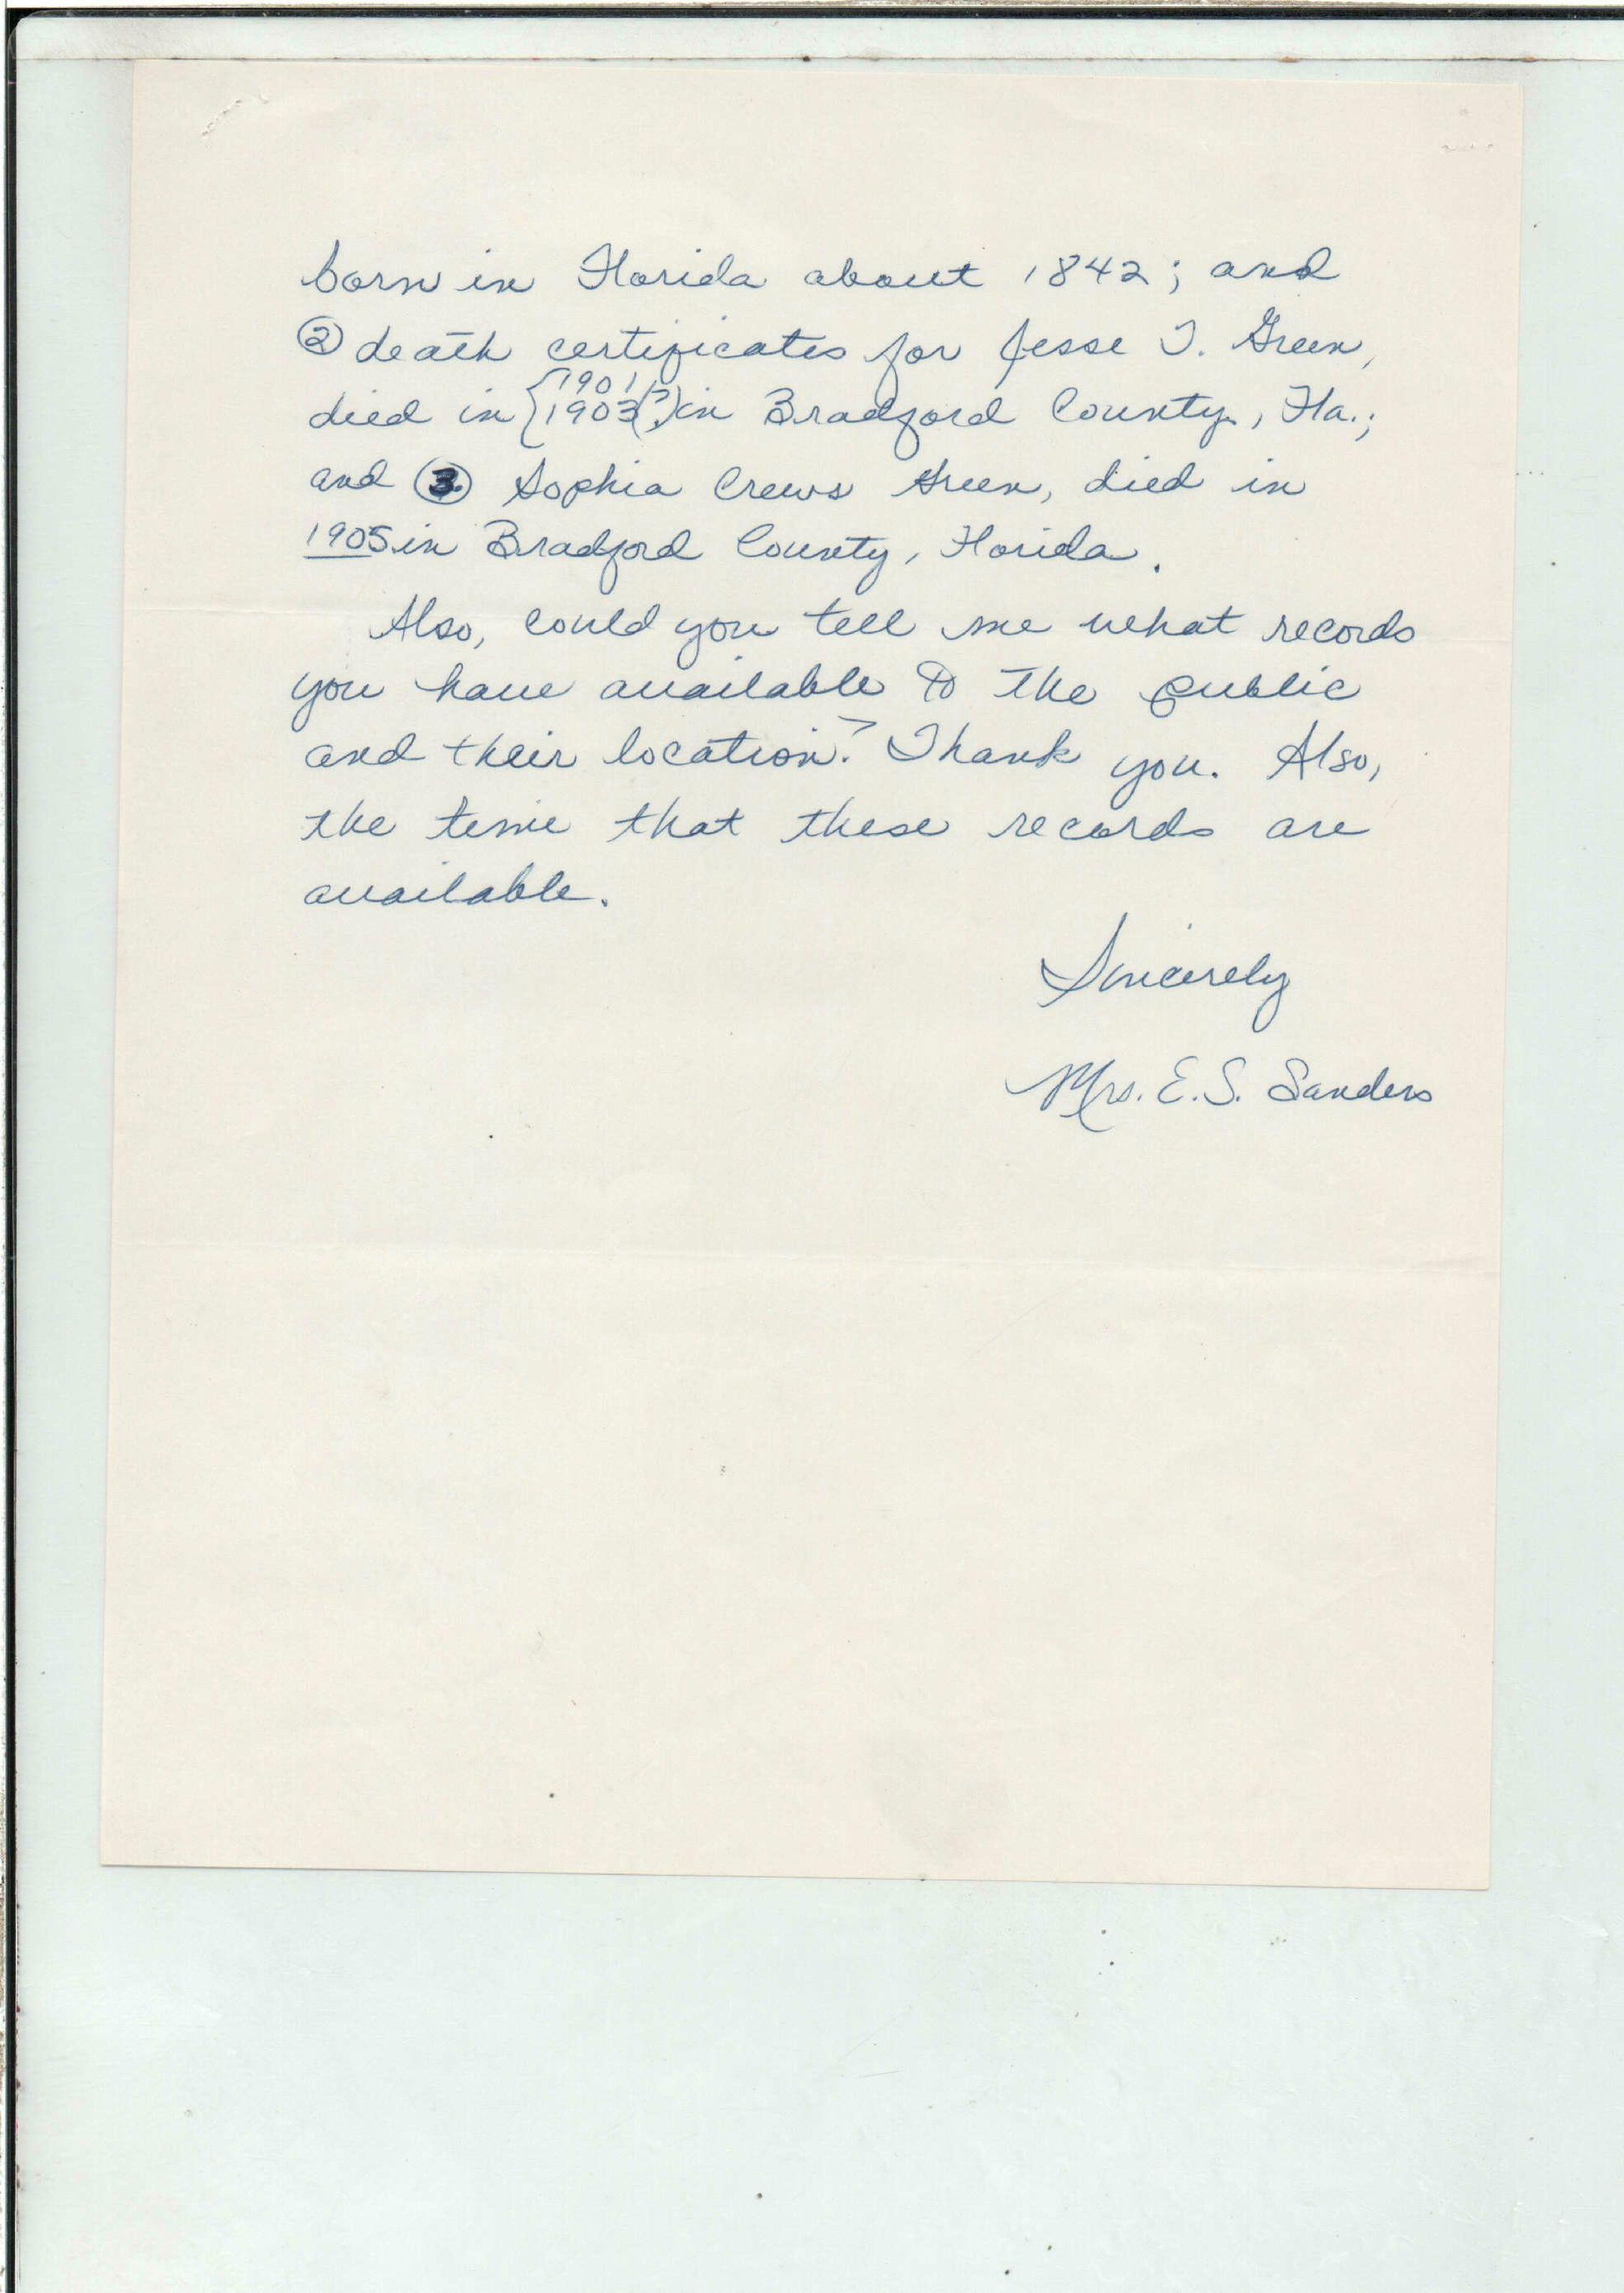 born in Florida about 1842; and
② death certificates for Jesse T. Green,
died in {1901/1903(?) in Bradford County, Fla.;
and ③ Sophia Crews Green, died in
1905 in Bradford County, Florida.
Also, could you tell me what records
you have available to the public
and their location? Thank you. Also,
the time that these records are
available.
Sincerely
Mrs. E. S. Sanders